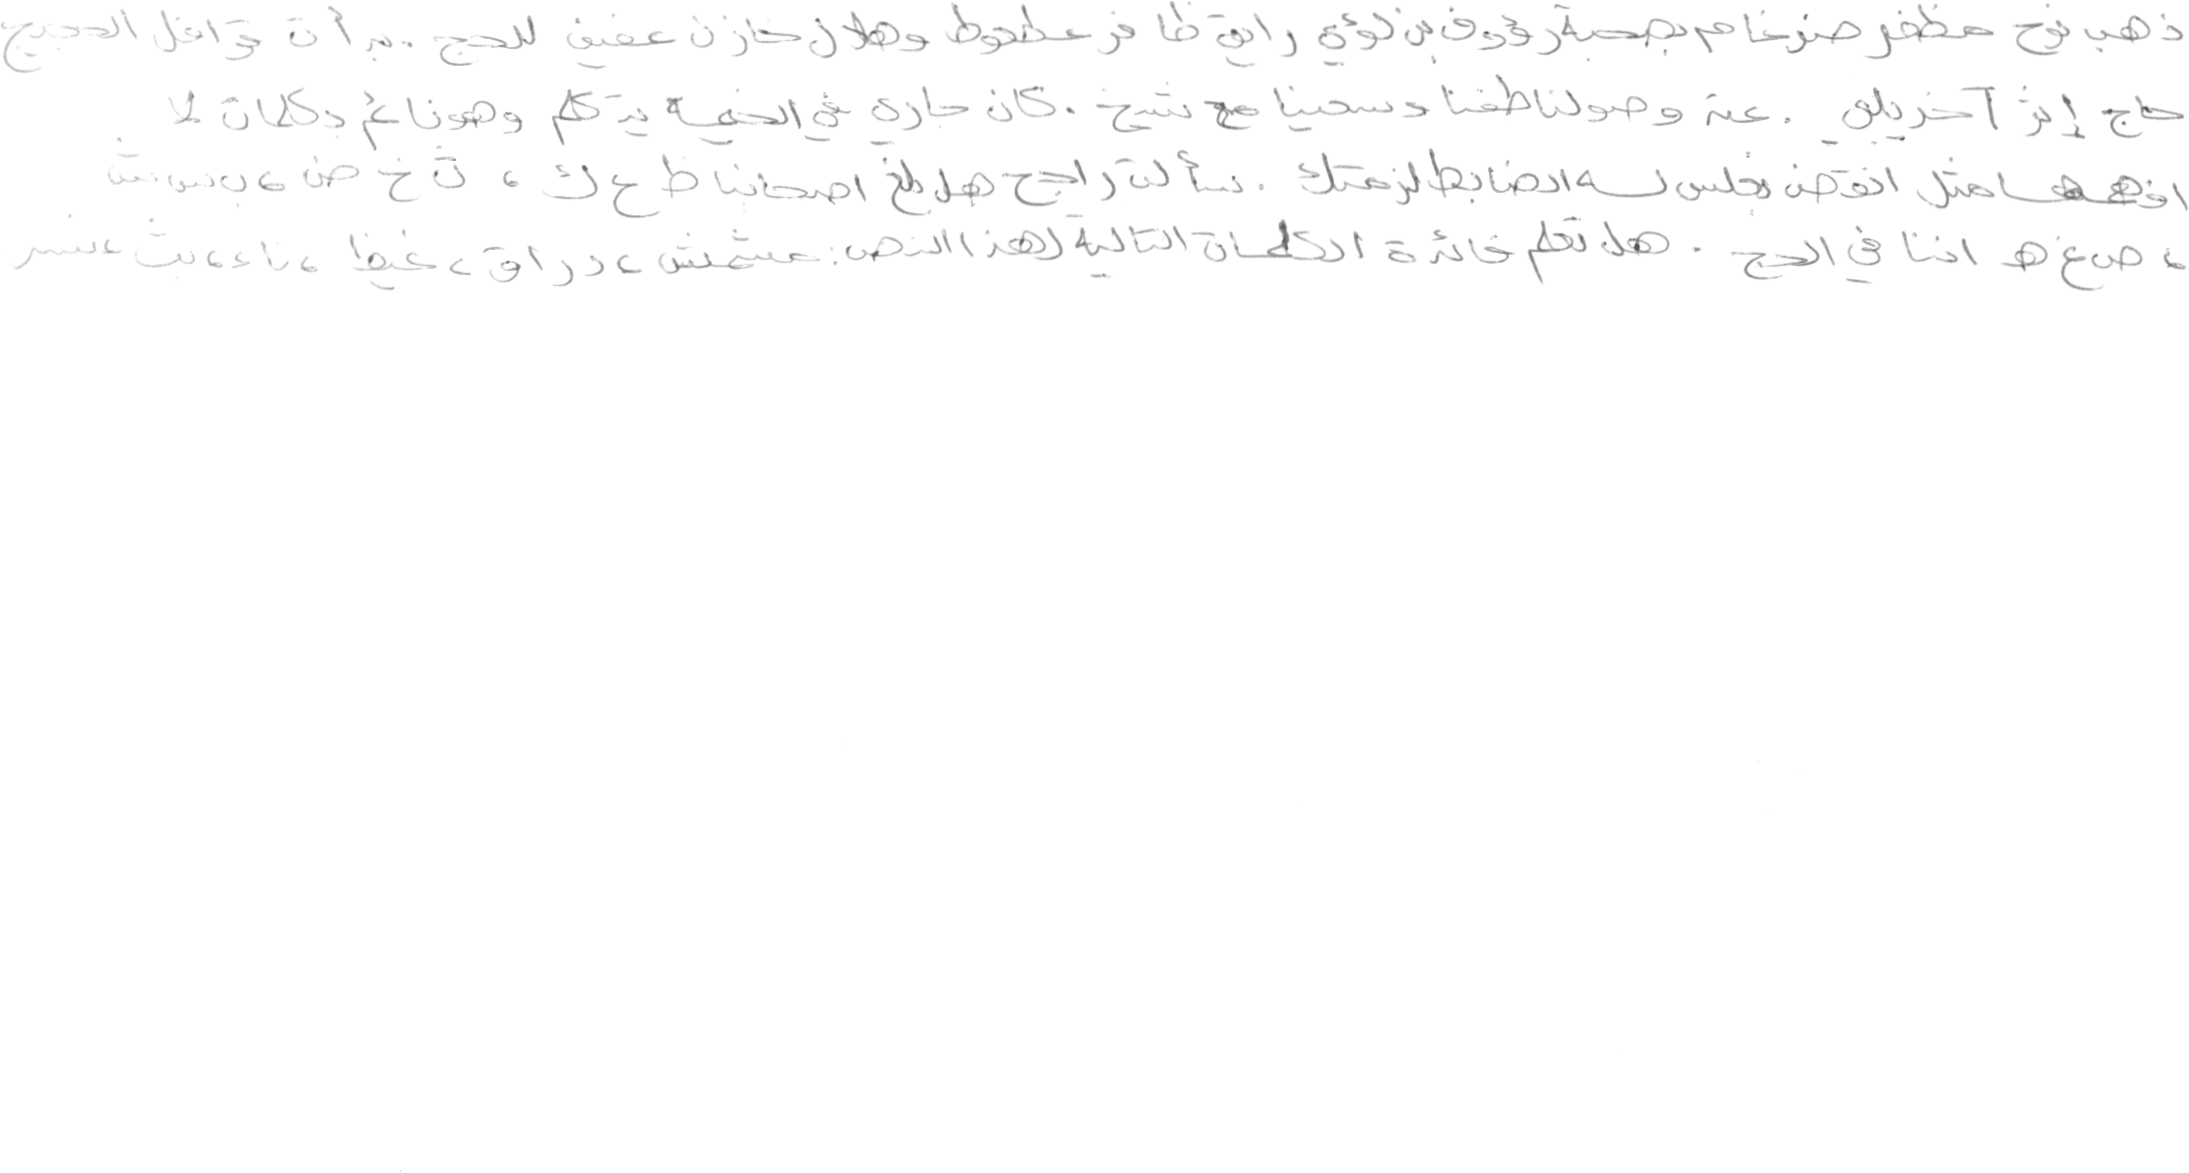 ذهب نوح مظفر ضرغام بصحبة رؤوف بن لؤي رايق ظافر عطعوط وهلال خازن عفيف للحج . بدأت قوافل الحجيج
حاج إثر آخر يلبي . عند وصولنا طفنا وسعينا مع شيخ . كان جاري في الخيمة يتكلم وهو نائم بكلمات لا
افهمها مثل انقض مجلس له الضابط لزمتك . سألت راجح هل بلغ اصحابنا ظ ع ك ، ث خ ض ، ب س ش
، ص غ ه اننا في الحج . هل تعلم فائدة الكلمات التالية لهذا النص : مشمش ، دراق ، غيظ ، ناء ، بث ، عسر